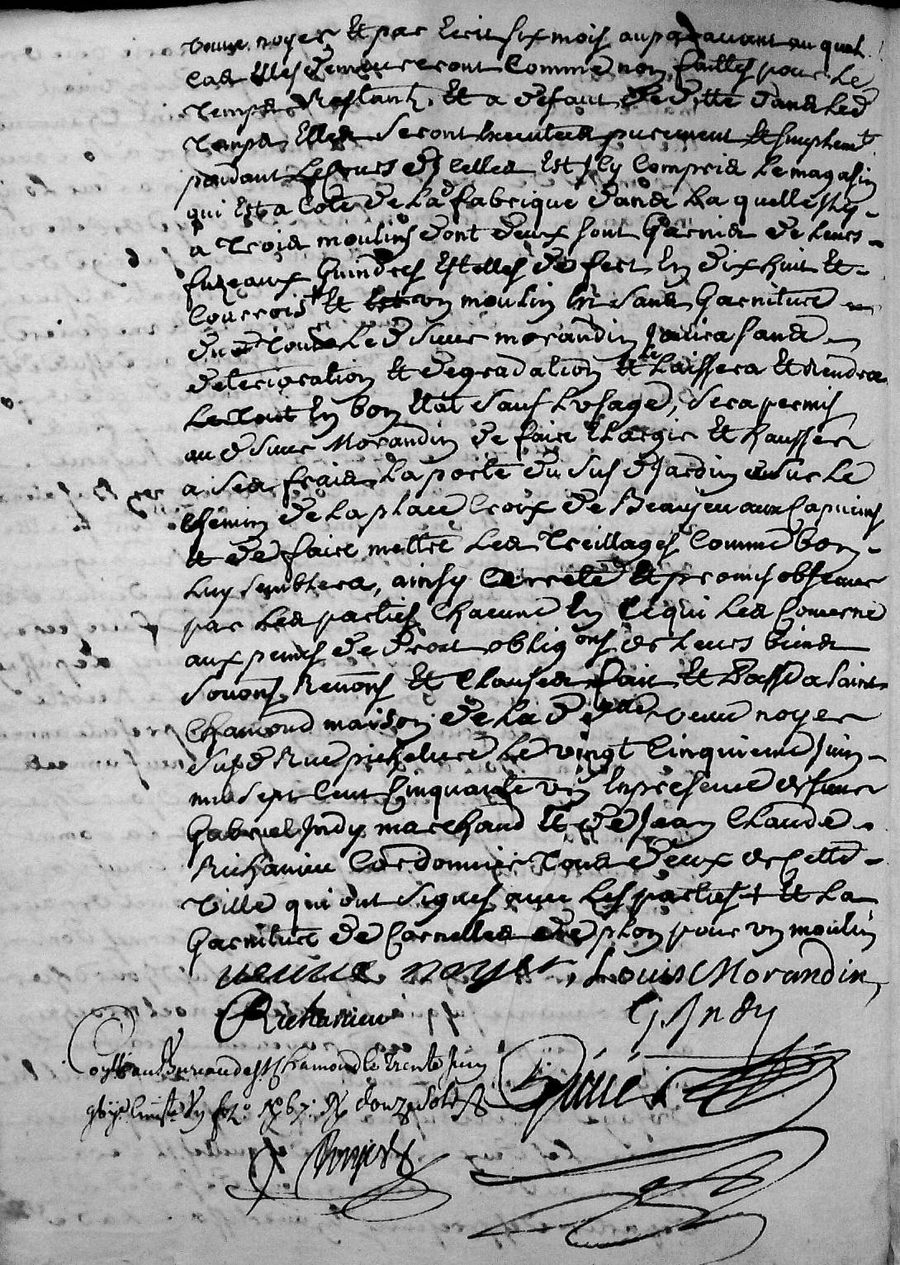 veuve noyer Et par Ecrit six mois auparavant au quel
Cas Elles demeureront Comme non faittes pour Le
Temps Restant, Et a deffaut de ditte dans Led
Temps Elles seront purement Et simplemt
pendant Le Cours dicelles Est Icy Compris Le magasin
qui Est a Coté de La fabrique dans La quelle Il y
a trois moulins dont deux sont Garnis de Leurs
fuzeaux Guindres Estelles de fert En dix huit Et
Courrois Et un moulin sans Garniture
du Tout Led Sieur morandin Jouira sans
deterioration Et degradation Et Laissera Et Rendra
Le Tout En bon Etat sauf Lusage, sera permis
aud Sieur Morandin de faire Elargir Et hausser
a ses frais La porte du sus d Jardin sur Le
Chemin de La place Croix de Beaujeu aux Capucins
Et de faire mettre Les Treillages Comme bon
Luy semblera, ainsy arreté Et promis observer
par Les parties Chacune En Ce qui Les Concerne
aux peines de droit obligons de Leurs biens
Soumons Renons Et Clauses fait Et Passé a Saint
Chamond maison de La d veuve noyer
susd Rue le vingt Cinquieme Juin
mil sept Cent Cinquante En presence de sieur
Gabriel Indy marchand Et de Jean Claude
Richarieu Cordonnier Tous deux de Cette
Ville qui ont signés avec Les parties + Et La
Garniture de Carnelles de plon pour un moulin
veuve noyer, Louis Morandin
Richarieu G. Indy
au Bureau de St Chamond le trente Juin
douze sols